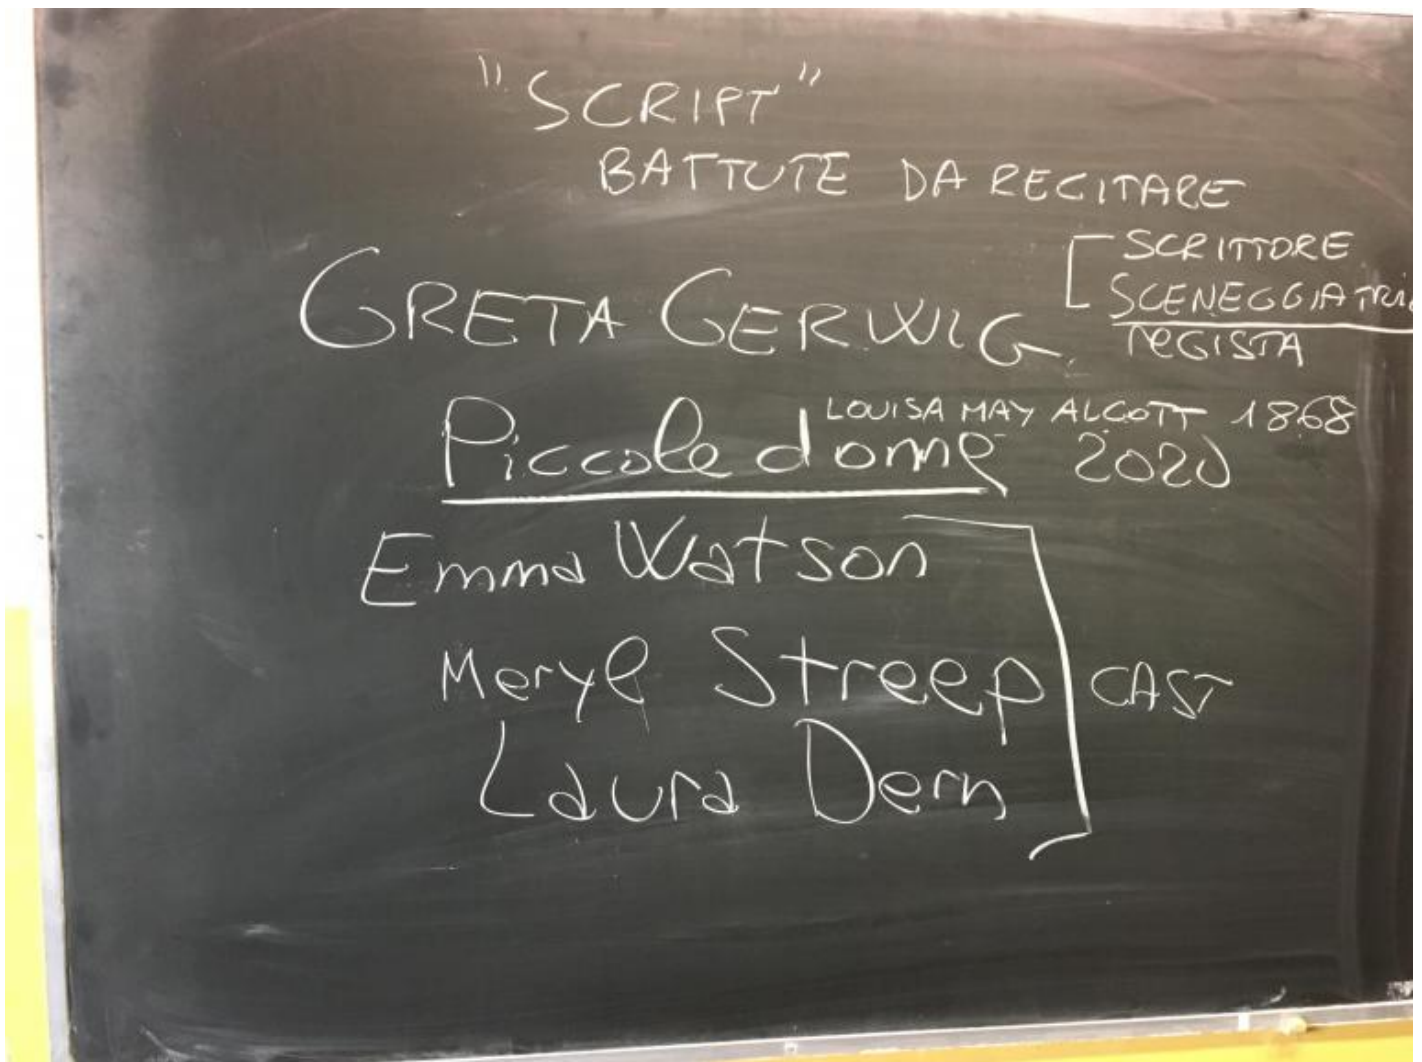 "SCRIPT"
BATTUTE DA RECITARE
GRETA GERWIG
SCRITTORE
SCENEGGIATRIC
REGISTA
LOUISA MAY ALCOTT 1868
Piccole donne 2020
Emma Watson
Meryl Streep
Laura Dern
CAST